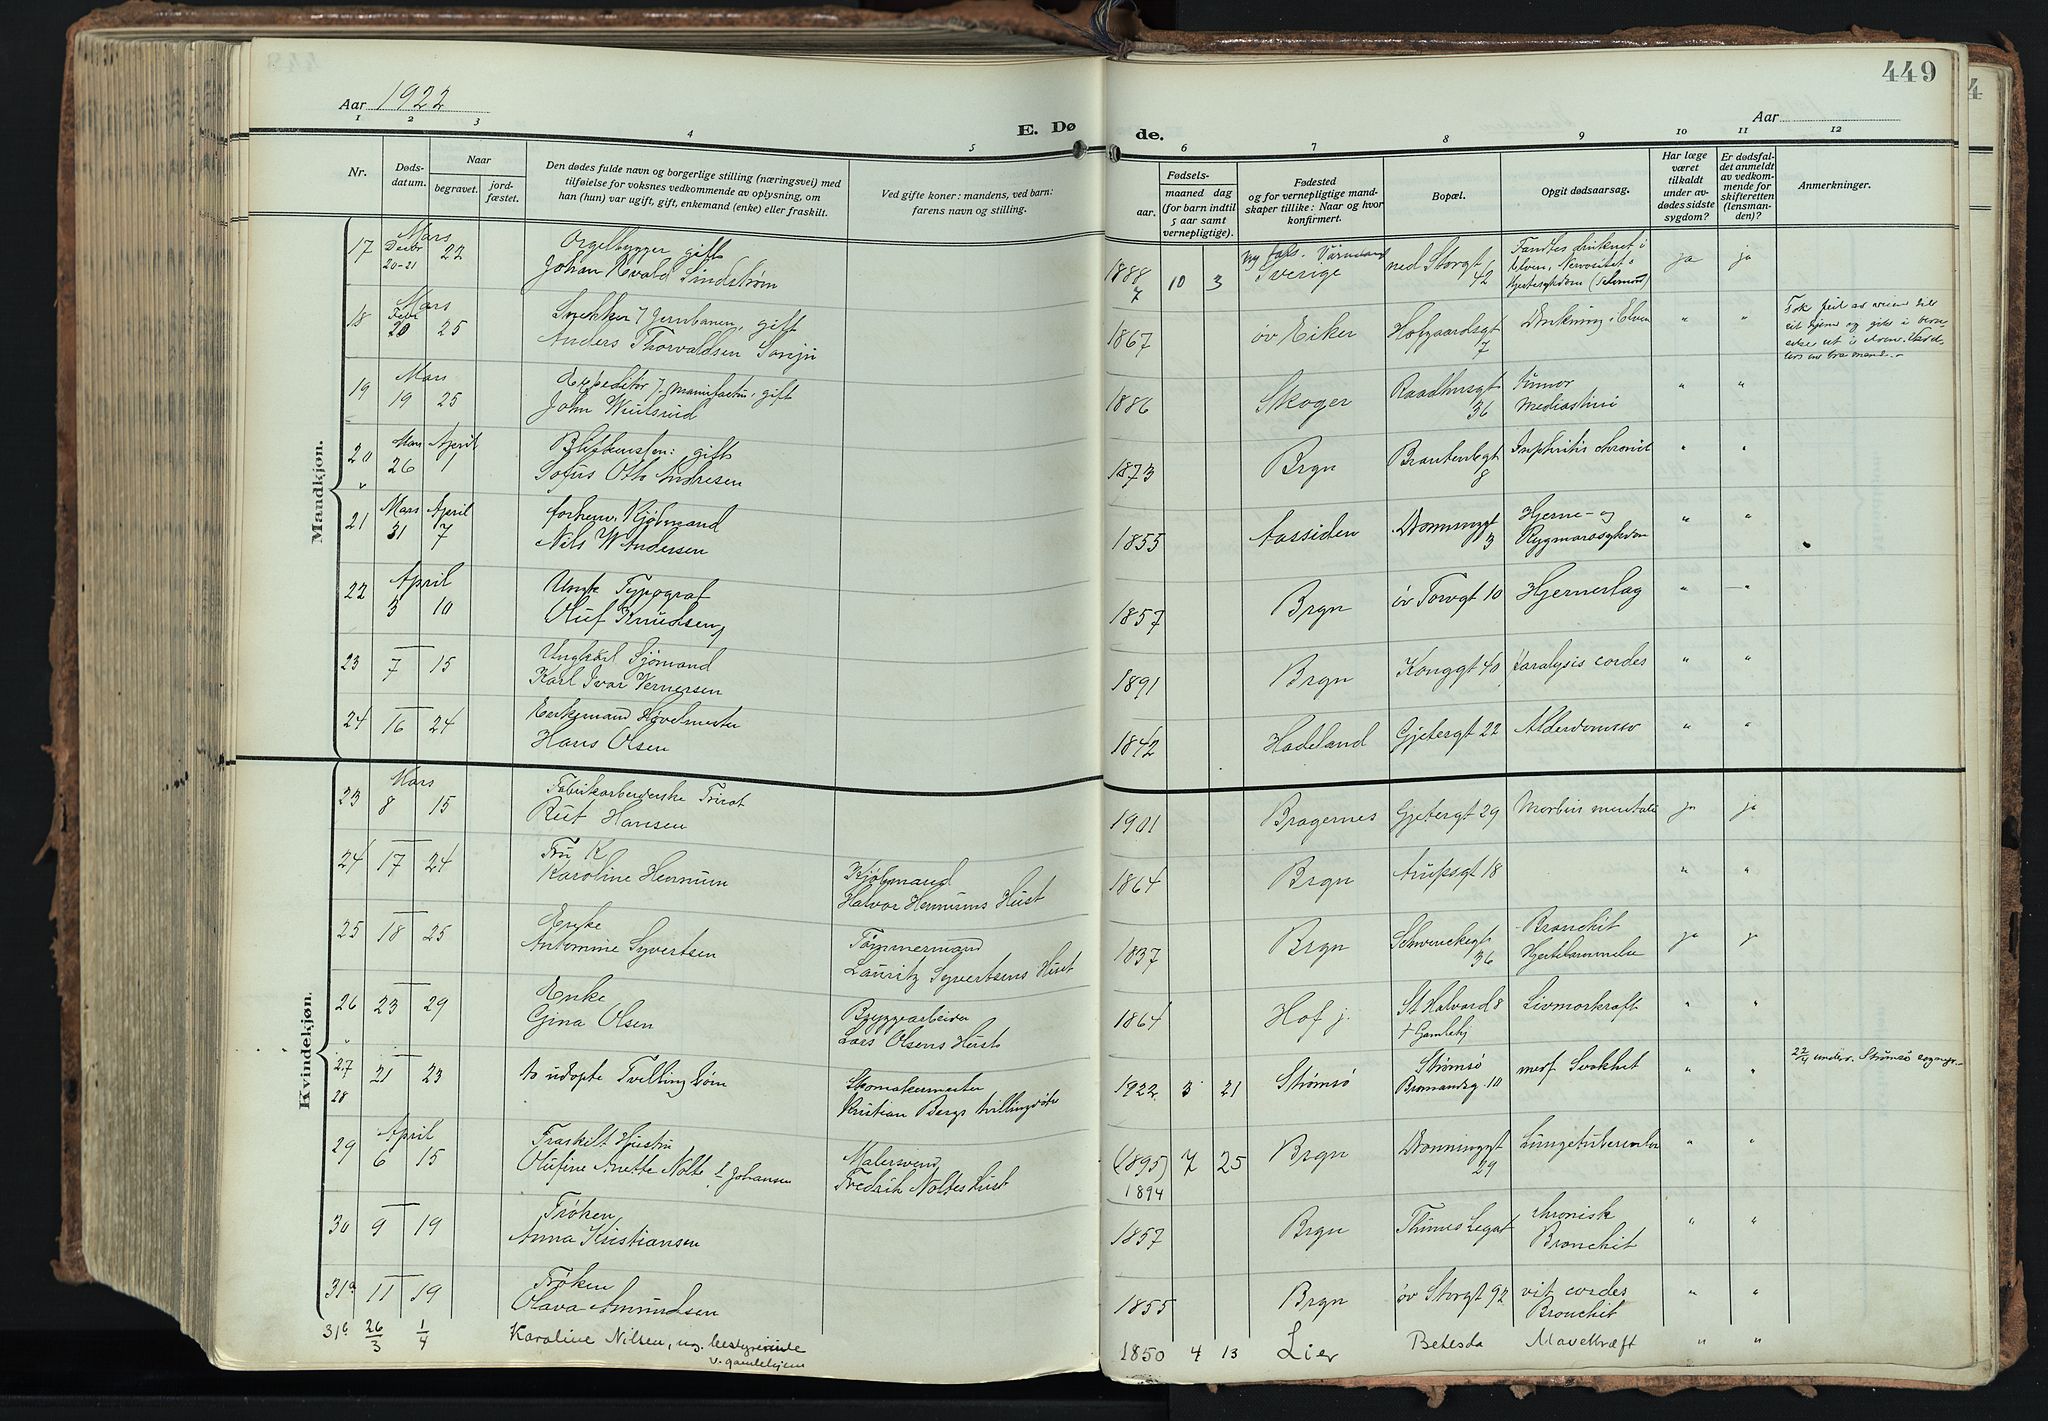 449
Aar 1922
E. Døde.
Aar
1 2 3 4 5 6 7 8 9 10 11 12
Nr.
Døds-datum.
Naar
begravet.
jord-fæstet.
Den dødes fulde navn og borgerlige stilling (næringsvei) med
tilføielse for voksnes vedkommende av oplysning, om
han (hun) var ugift, gift, enkemand (enke) eller fraskilt.
Ved gifte koner: mandens, ved barn:
farens navn og stilling.
Fødsels-
aar.
maaned dag
(for barn indtil
5 aar samt
vernepligtige).
Fødested
og for vernepligtige mand-
skaper tillike: Naar og hvor
konfirmert.
Bopæl.
Opgit dødsaarsag.
Har læge
været
tilkaldt
under av-
dødes sidste
sygdom?
Er dødsfal-
det anmeldt
av vedkom-
mende for
skifteretten
(lensman-
den)?
Anmerkninger.
Mandkjøn.
17 Decbr 20-21 Mars 22 Orgelbygger, gift
Johan Evald Lindstrøm 1888 10 3 Sverige ned Storgt 42 Fandtes druknet i
Elven, ja ja
18 Febr 20 Mars 25 Snekker v/ Jernbanen, gift
Anders Thorvaldsen 1867 øv Eiker Hofgaardsgt 7 Drukning i Elven " "
19 Mars 19 25 Expeditør v/ manufactur, gift
John 1886 Skoger Raadhusgt 36 Tumor
Mediastini " "
20 Mars 26 April 1 gift
Sofus Otto Andresen 1873 Brgn 8 " "
21 Mars 31 April 7 forhenv. Kjøbmand
Nils W Andersen 1855 Aassiden Dronninggt 3 Hjerne- og
Rygmarvsygdom " "
22 April 3 10 Typograf
Oluf Knudsen 1857 Brgn øv Torvgt 10 Hjerneslag " "
23 7 15 Ungkarl Sjømand
Karl Ivar Vernersen 1891 Brgn Konggt 40 Paralysis cordis " "
24 16 24 Enkemand Høvelmester
Hans Olsen 1842 Hadeland Gjetergt 22 " "
Kvindekjøn.
23 Mars 8 15 Fabrikarbeiderske Tricot
Rut Hansen 1901 Bragernes Gjetergt 29 Morbus mentalis ja ja
24 17 24 Fru
Karoline Hennum Kjøbmand
Halvor Hennums Hust 1864 Brgn Arupsgt 18 " "
25 18 25 Enke
Antomine Syvertsen Tømmermand
Lauritz Syvertsens Hust 1837 Brgn Schwenckegt 36 Bronchit
Hjertelammelse ja ja
26 23 29 Enke
Gina Olsen Bryggearbeider
Lars Olsens Hust 1864 Hof j. St Halvard 8
+ Gamlehj Livmorkræft " "
27
28 21 23 to udøpte Tvillingbørn Skomakermester
Kristian Bergs tvillingdøtre 1922 3 21 Strømsø Strømsø
10 medf Svakhet " "
29 April 6 15 Fraskilt Hustru
Olufine Anette Nolte, f Johansen Malersvend
Fredrik Noltes Hust (1895) 1894 7 25 Brgn Dronninggt 29 Lungetuberculose " "
30 9 19 Frøken
Anna Kristiansen 1857 Brgn Thimes Legat chronisk
Bronchit " "
31a 11 19 Frøken
Olava Amundsen 1855 Brgn øv Storgt 92 vit. cordis
Bronchit " "
31b 26/3 1/4 Karoline Nilsen, ug. bestyrerinde
v. gamlehjem 1850 4 13 Lier Betesda Mavekræft " "